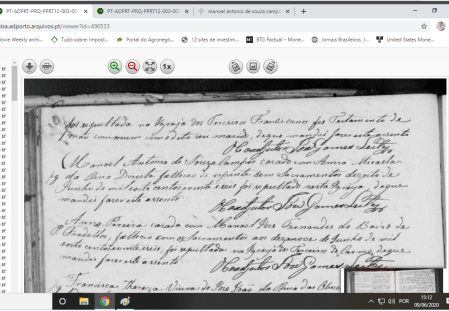 PT-ADPRT-PRQ-PPRT12-003-00
PT-ADPRT-PRQ-PPRT12-003-00
manoel antonio de souza camp
isa.adporto.arquivos.pt/viewer?id=490533
ovie Weekly archi...
Tudo sobre: impost...
Portal do Agroneg...
12 sites de investim...
BTG Pactual – Mone...
Jornais Brasileiros, J...
United States Mone...
1x
foi sepultada na Igreja dos Terceiros Franciscanos fez Testamento de
mao commum com o dito seu marido, de que mandei fazer este assento
O Coadjutor José Gomes
Manoel Antonio de Souza Campos casado com Anna Micaela
da Rua Direita falleceo de repente sem Sacramentos dezoito de
Junho de mil oito centos vinte e seis foi sepultado nesta Igreja, de que
mandei fazer este assento
O Coadjutor José Gomes
Anna Pereira casada com Manoel José Fernandes do Bairro de
falleceo com os Sacramentos aos dezanove de Junho de mil
oito centos vinte e seis, foi sepultada na Igreja do Terceiro do Carmo, de que
mandei fazer este assento
O Coadjutor José Gomes
Francisca Thereza Vieira de José João da Rua das
POR
15:12
09/06/2020